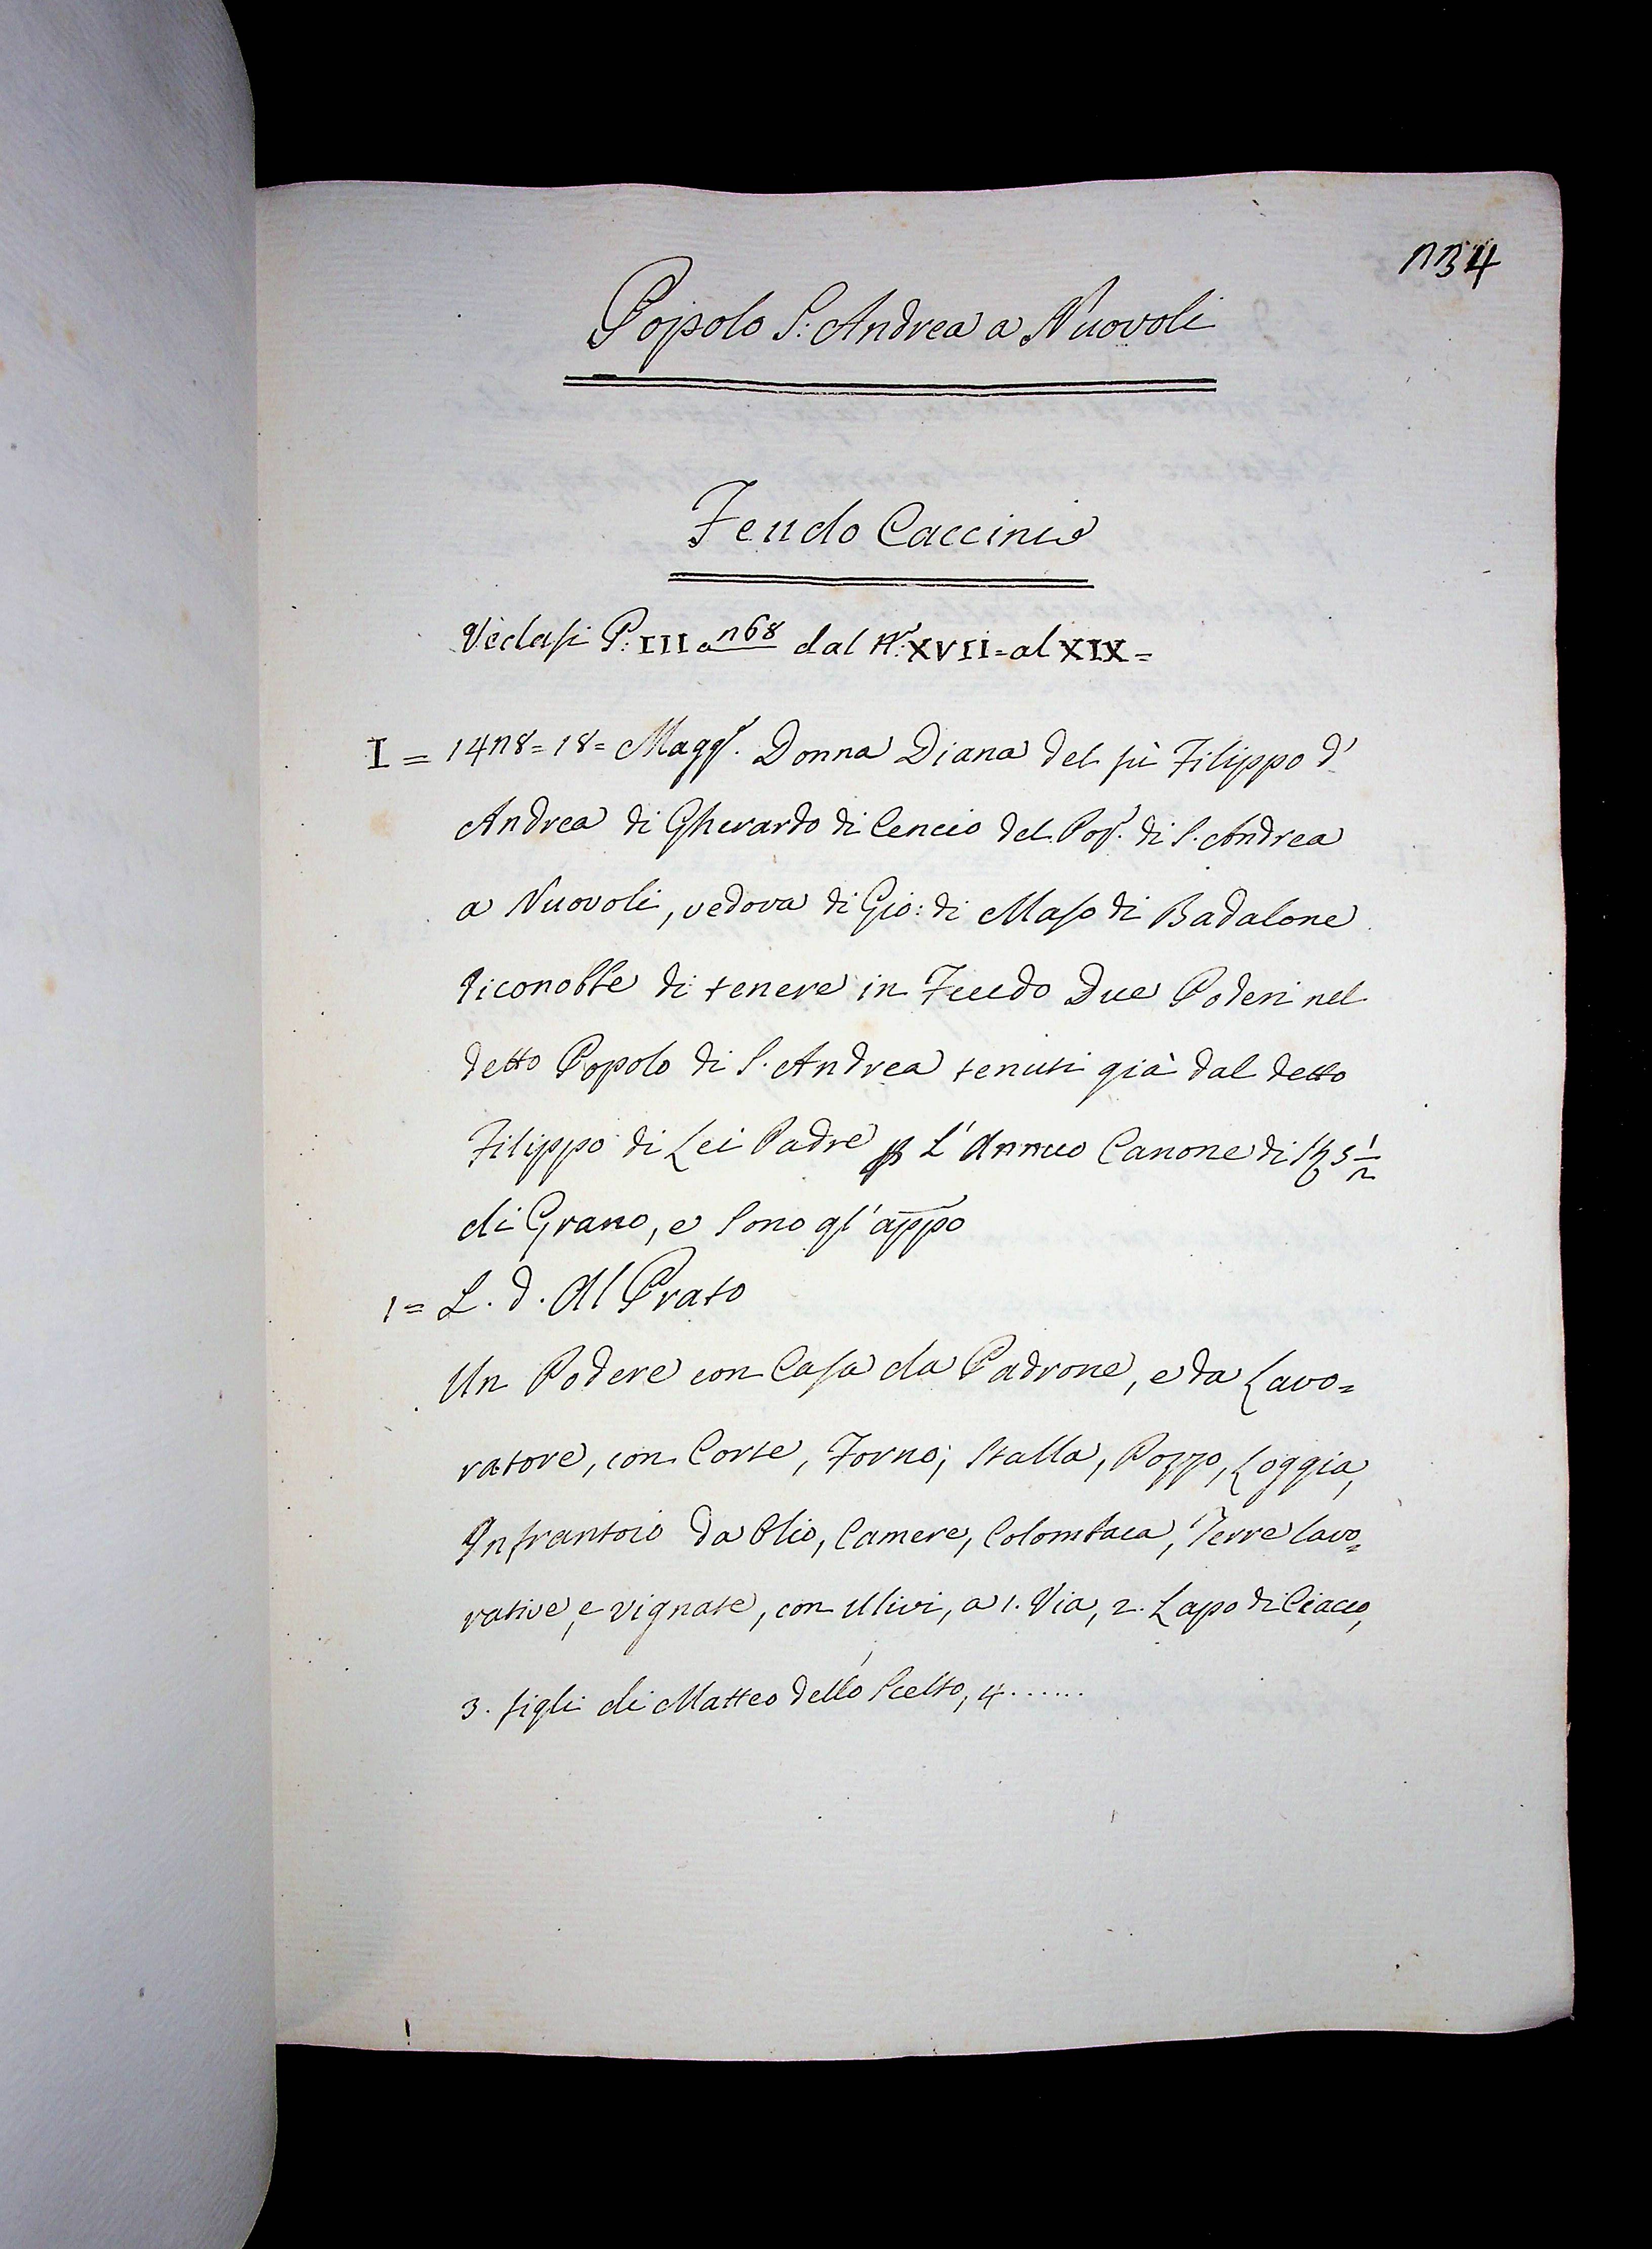 234
Popolo S: Andrea a Nuovoli
Feudo Caccini
Vedasi P: III a 268 dal N.° XVII = al XIX =
I = 1428 = 18 = Magg.° Donna Diana del fù Filippo d'
Andrea di Gherardo di Cencio del Pop.° di S. Andrea
a Nuovoli, vedova di Gio: di Maso di Badalone
riconobbe di tenere in Feudo Due Poderi nel
detto Popolo di S. Andrea tenuti già dal detto
Filippo di Lei Padre p L'Annuo Canone di 5 1/2
di Grano, e sono gl'appo
1 = L. d. Al Prato
Un Podere con Casa da Padrone, e da Lavo=
ratore, con Corte, Forno, Stalla, Pozzo, Loggia,
Infrantoio da Olio, Camere, Colombaca, Terre lavo=
rative, e vignate, con Ulivi, a 1. Via, 2. Lapo di Ciacco,
3. figli di Matteo dello Scelto, 4......